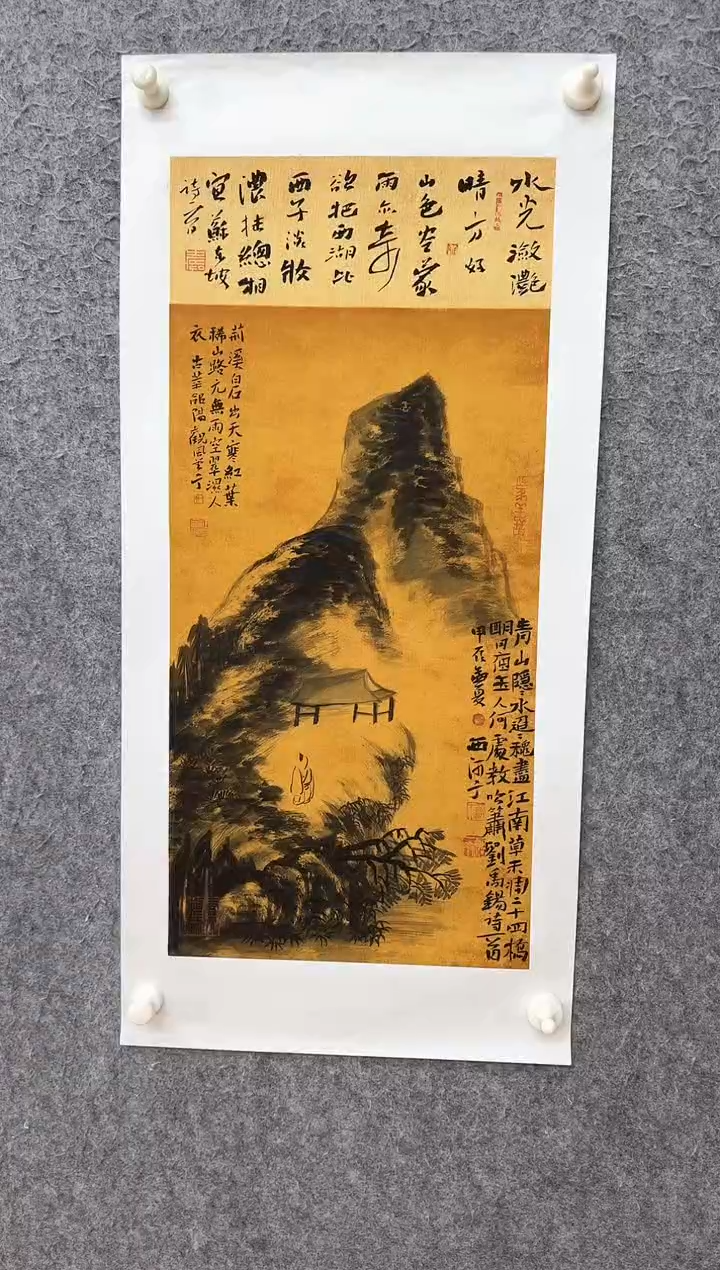 水光潋灩
晴方好
山色空蒙
雨亦奇
欲把西湖比
西子淡妝
濃抹總相
宜蘇東坡
詩一首
荊溪白石出天寒紅葉
稀山路元無雨空翠濕人
衣
青山隱〻水迢〻穐盡江南草未凋二十四橋
明月夜玉人何處教吹簫劉禹錫詩一首
甲辰孟夏
西河